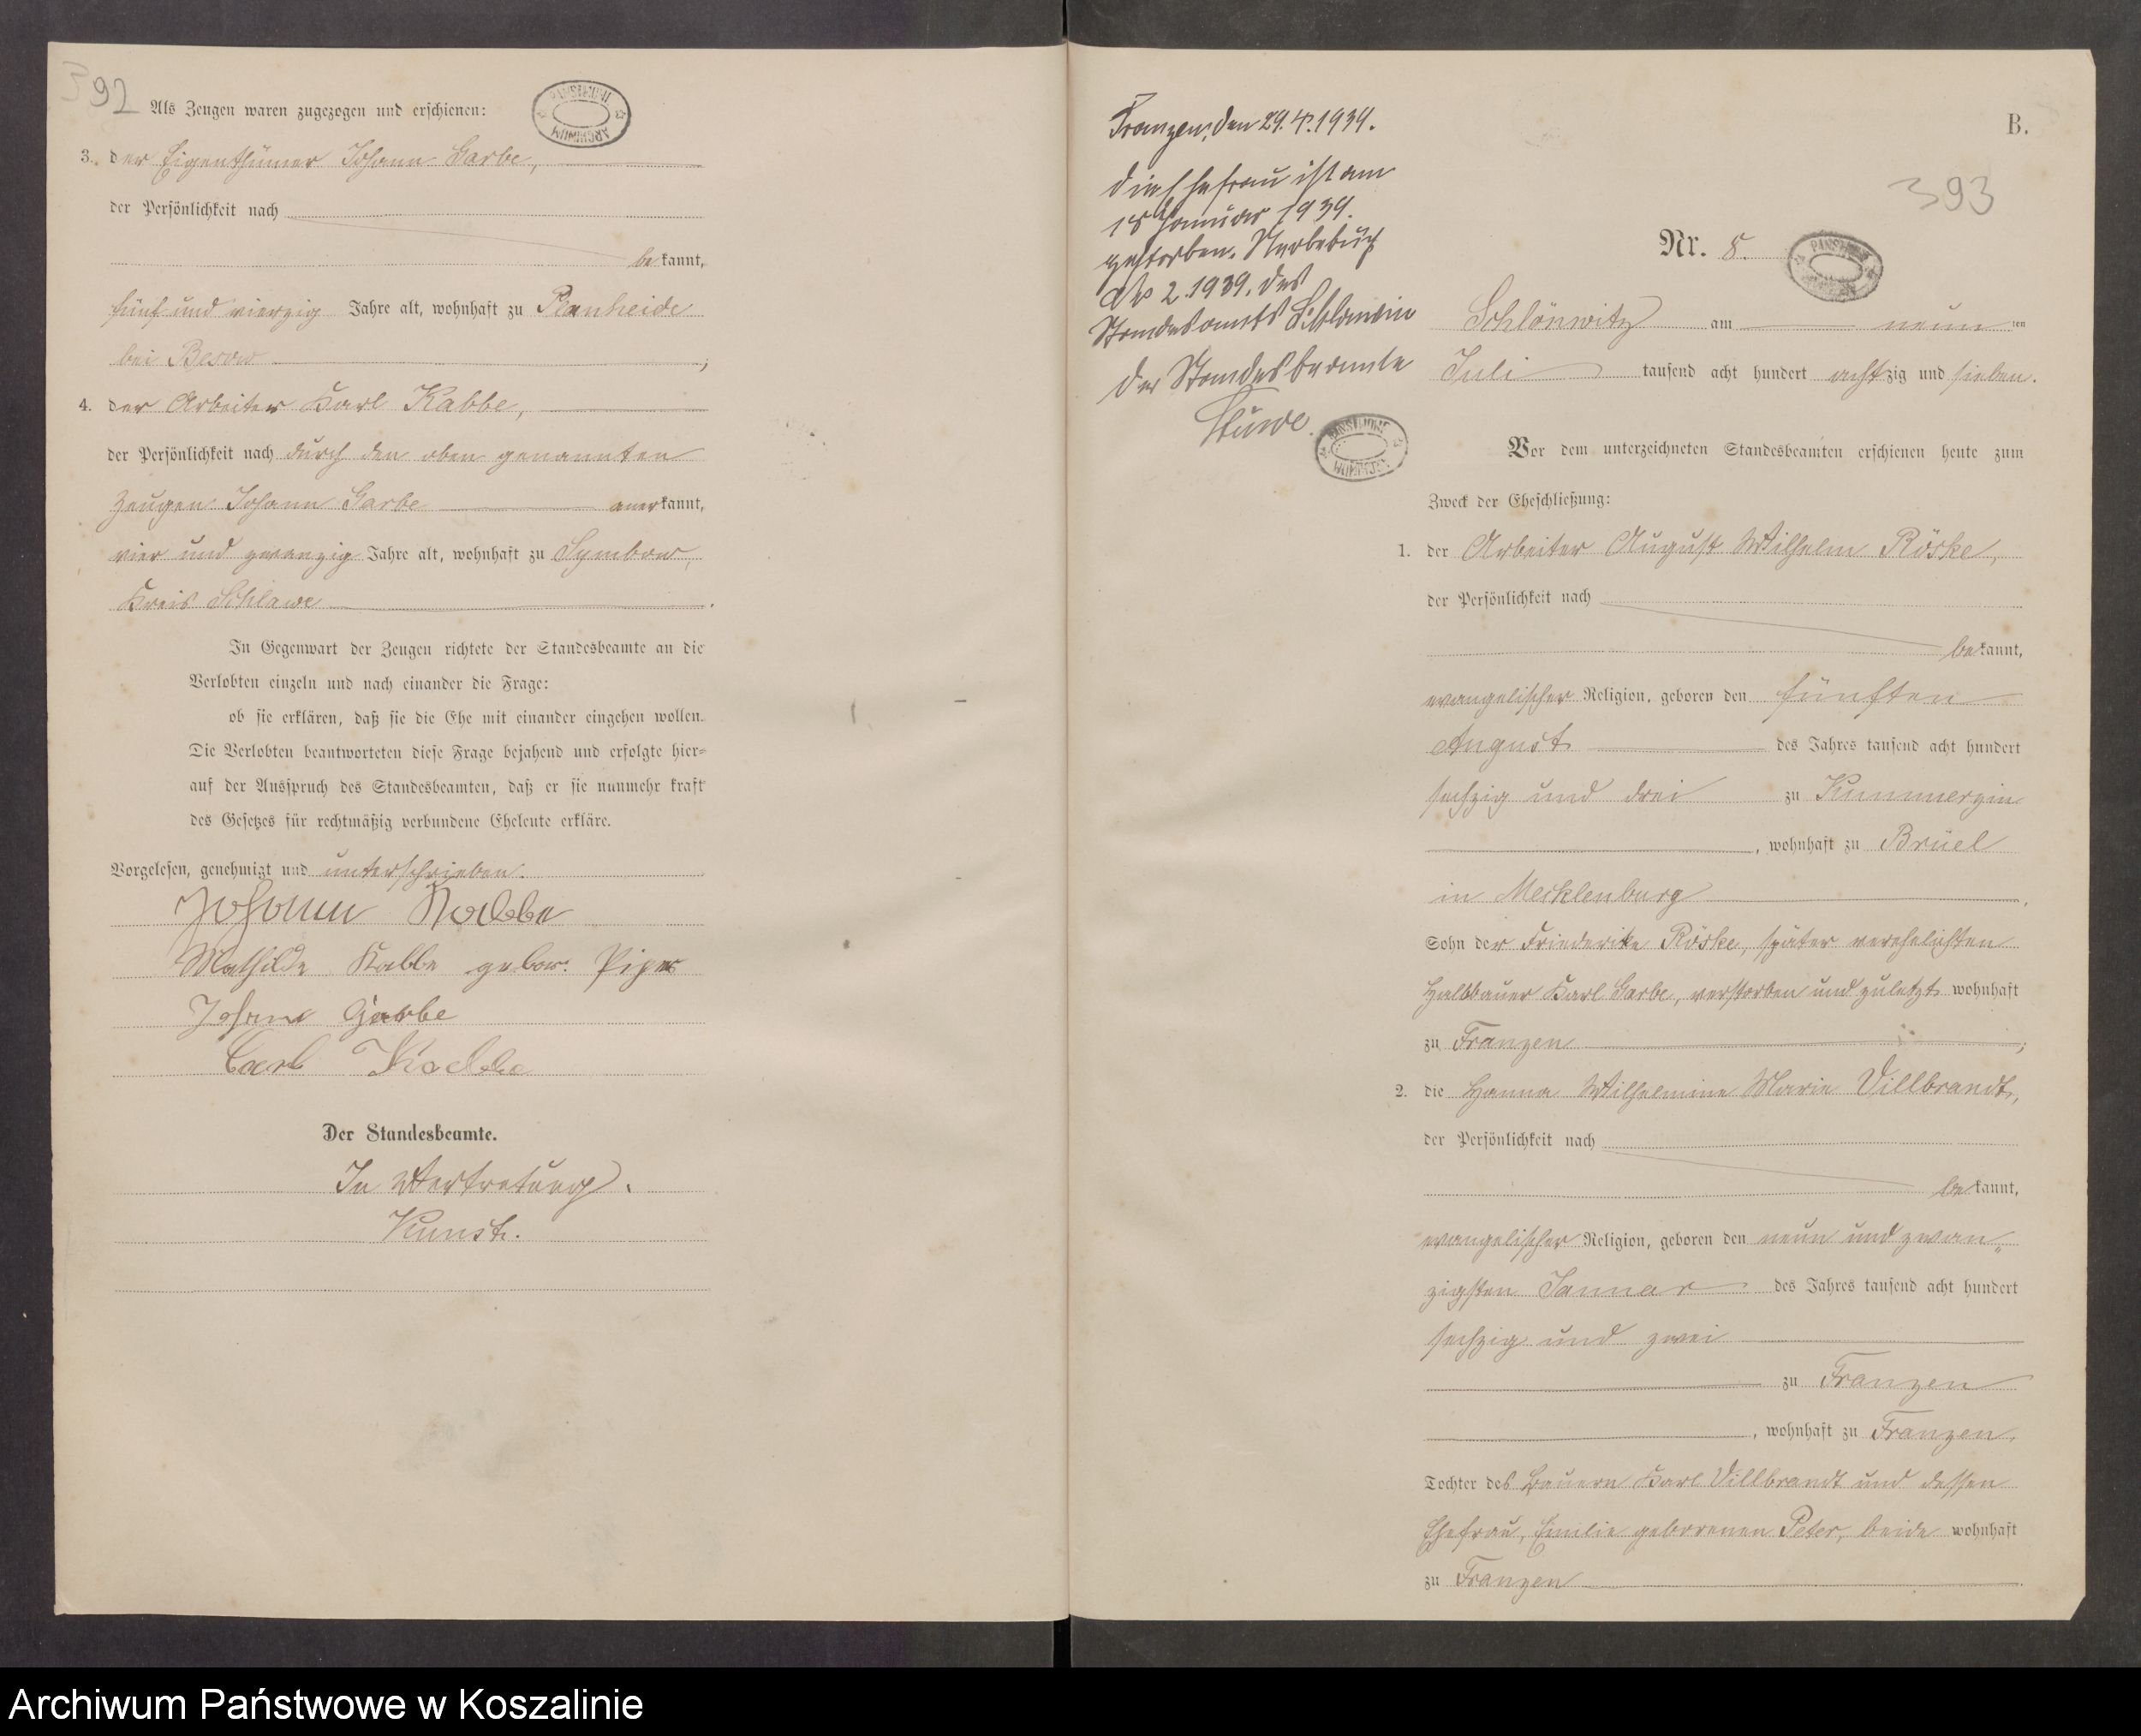 392
Als Zeugen waren zugezogen und erschienen:
3. der Eigenthümer Johann Garbe,
der Persönlichkeit nach
be kannt,
fünf und vierzig Jahre alt, wohnhaft zu Planheide
bei Besow ;
4. der Arbeiter Karl Kabbe,
der Persönlichkeit nach durch den oben genannten
Zeugen Johann Garbe anerkannt,
vier und zwanzig Jahre alt, wohnhaft zu Symbow,
Kreis Schlawe .
In Gegenwart der Zeugen richtete der Standesbeamte an die
Verlobten einzeln und nach einander die Frage:
ob sie erklären, daß sie die Ehe mit einander eingehen wollen.
Die Verlobten beantworteten diese Frage bejahend und erfolgte hier=
auf der Ausspruch des Standesbeamten, daß er sie nunmehr kraft
des Gesetzes für rechtmäßig verbundene Eheleute erkläre.
Vorgelesen, genehmigt und unterschrieben.
Johann Kabbe
Mathilde Kabbe gebor. Piper
Johann Garbe
Carl Kabbe
Der Standesbeamte.
In Vertretung.
Kunst.
Franzen, den 29.4.1939.
Die Ehefrau ist am
18 Januar 1939.
gestorben. Sterbebuch
No 2.1939. des
Standesamts
Der Standesbeamte
Stüwe.
B.
393
Nr. 8.
Schlönwitz am neun ten
Juli tausend acht hundert achtzig und sieben.
Vor dem unterzeichneten Standesbeamten erschienen heute zum
Zweck der Eheschließung:
1. der Arbeiter August Wilhelm Röske,
der Persönlichkeit nach
be kannt,
evangelischer Religion, geboren den fünften
August des Jahres tausend acht hundert
sechzig und drei zu Kummerzin
, wohnhaft zu Brüel
in Mecklenburg .
Sohn der Friederike Röske, später verehelichten
Halbbauer Karl Garbe, verstorben und zuletzt wohnhaft
zu Franzen ;
2. die Hanna Wilhelmine Marie Villbrandt,
der Persönlichkeit nach
be kannt,
evangelischer Religion, geboren den neun und zwan„
zigsten Januar des Jahres tausend acht hundert
sechzig und zwei
zu Franzen
, wohnhaft zu Franzen,
Tochter des Bauern Karl Villbrandt und dessen
Ehefrau, Emilie geborenen Peter, beide wohnhaft
zu Franzen .
Archiwum Państwowe w Koszalinie